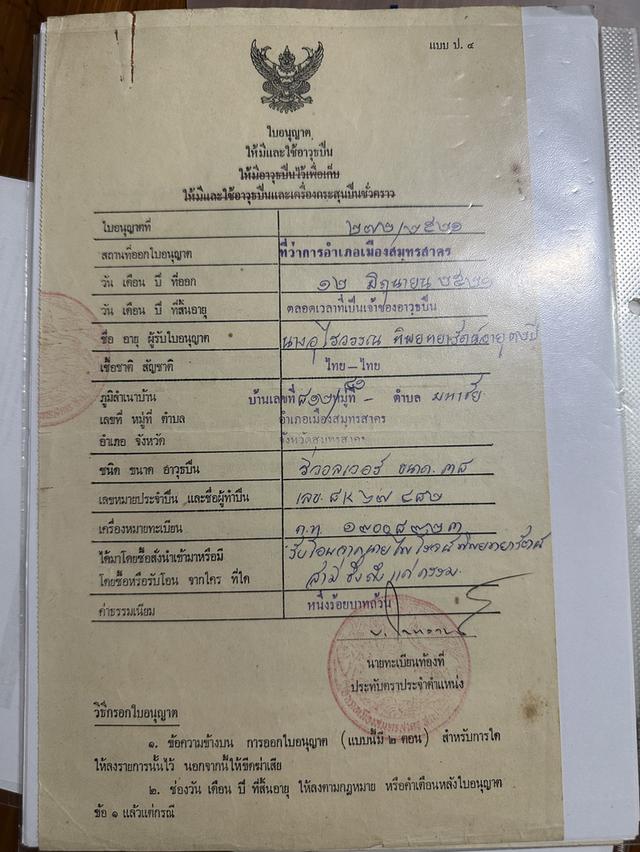 แบบ ป. ๔
ใบอนุญาต
ให้มีและใช้อาวุธปืน
ให้มีอาวุธปืนไว้เพื่อเก็บ
ให้มีและใช้อาวุธปืนและเครื่องกระสุนปืนชั่วคราว
ใบอนุญาตที่ ๒๗๒/๒๕๒๑
สถานที่ออกใบอนุญาต ที่ว่าการอำเภอเมืองสมุทรสาคร
วัน เดือน ปี ที่ออก ๑๒ มิถุนายน ๒๕๒๑
วัน เดือน ปี ที่สิ้นอายุ ตลอดเวลาที่เป็นเจ้าของอาวุธปืน
ชื่อ อายุ ผู้รับใบอนุญาต นางอุไรวรรณ อายุ ปี
เชื้อชาติ สัญชาติ ไทย–ไทย
ภูมิลำเนาบ้าน บ้านเลขที่ หมู่ที่ – ตำบล มหาชัย
เลขที่ หมู่ที่ ตำบล อำเภอเมืองสมุทรสาคร
อำเภอ จังหวัด จังหวัดสมุทรสาคร
ชนิด ขนาด อาวุธปืน รีวอลเวอร์ ขนาด .๓๘
เลขหมายประจำปืน และชื่อผู้ทำปืน เลข
เครื่องหมายทะเบียน
ได้มาโดยซื้อสั่งนำเข้ามาหรือมี รับโอนจากนาย
โดยซื้อหรือรับโอน จากใคร ที่ใด สามี ซึ่งถึงแก่กรรม
ค่าธรรมเนียม หนึ่งร้อยบาทถ้วน
นายทะเบียนท้องที่
ประทับตราประจำตำแหน่ง
วิธีกรอกใบอนุญาต
๑. ข้อความข้างบน การออกใบอนุญาต (แบบนี้มี ๒ ตอน) สำหรับการใด
ให้ลงรายการนั้นไว้ นอกจากนี้ให้ขีดฆ่าเสีย
๒. ช่องวัน เดือน ปี ที่สิ้นอายุ ให้ลงตามกฎหมาย หรือคำเตือนหลังใบอนุญาต
ข้อ ๑ แล้วแต่กรณี